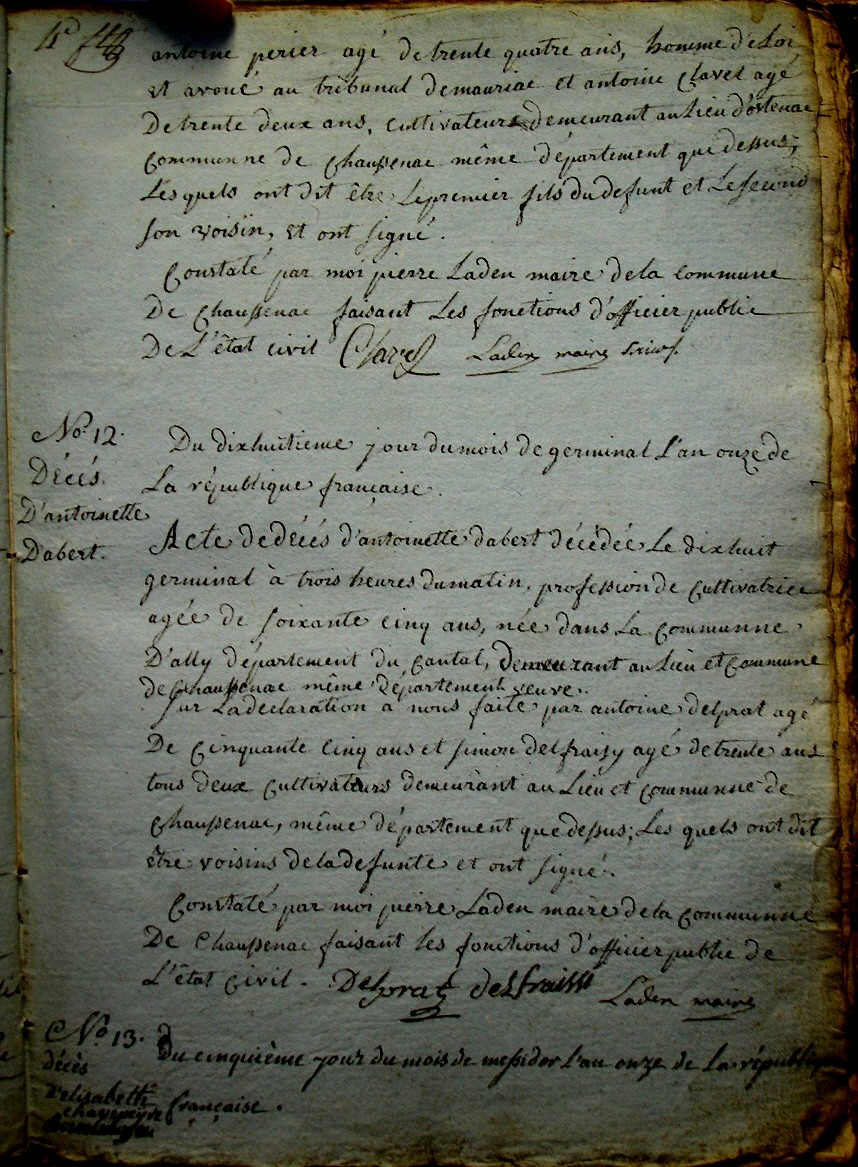 4e
antoine perier agé de trente quatre ans, homme de Loi
et avoué au tribunal de mauriac et antoine Clavel agé
De trente deux ans, cultivateurs demeurant au Lieu d'ostenac
communne de chaussenac même département que dessus;
Les quels ont dit être Le premier fils du defunt et Le second
son voisin, et ont signé.
Constaté par moi pierre Laden maire de la commune
De chaussenac faisant Les fonctions d'officier public
De L'état civil Clavel Laden maire
No. 12.
Décés
D'antoinette
Dabert.
Du dixhuitieme jour du mois de germinal L'an onze de
La république française.
Acte de décés d'antoinette dabert décédée Le dixhuit
germinal à trois heures du matin, profession de cultivatrice
agée de soixante cinq ans, née dans La communne
D'ally département du cantal, demeurant au Lieu et commune
de chaussenac même département veuve.
sur La declaration à nous faite par antoine delprat agé
De cinquante cinq ans et simon delfraissy agé de trente ans
tous deux cultivateurs demeurant au Lieu et communne de
chaussenac, même département que dessus; Les quels ont dit
être voisins de la defunte et ont signé.
Constaté par moi pierre Laden maire de la communne
De Chaussenac faisant les fonctions d'officier public de
L'état civil. Delprat delfraissi Laden maire
No. 13.
décès
d'elisabeth
Du cinquième jour du mois de messidor L'an onze de La républi
française.